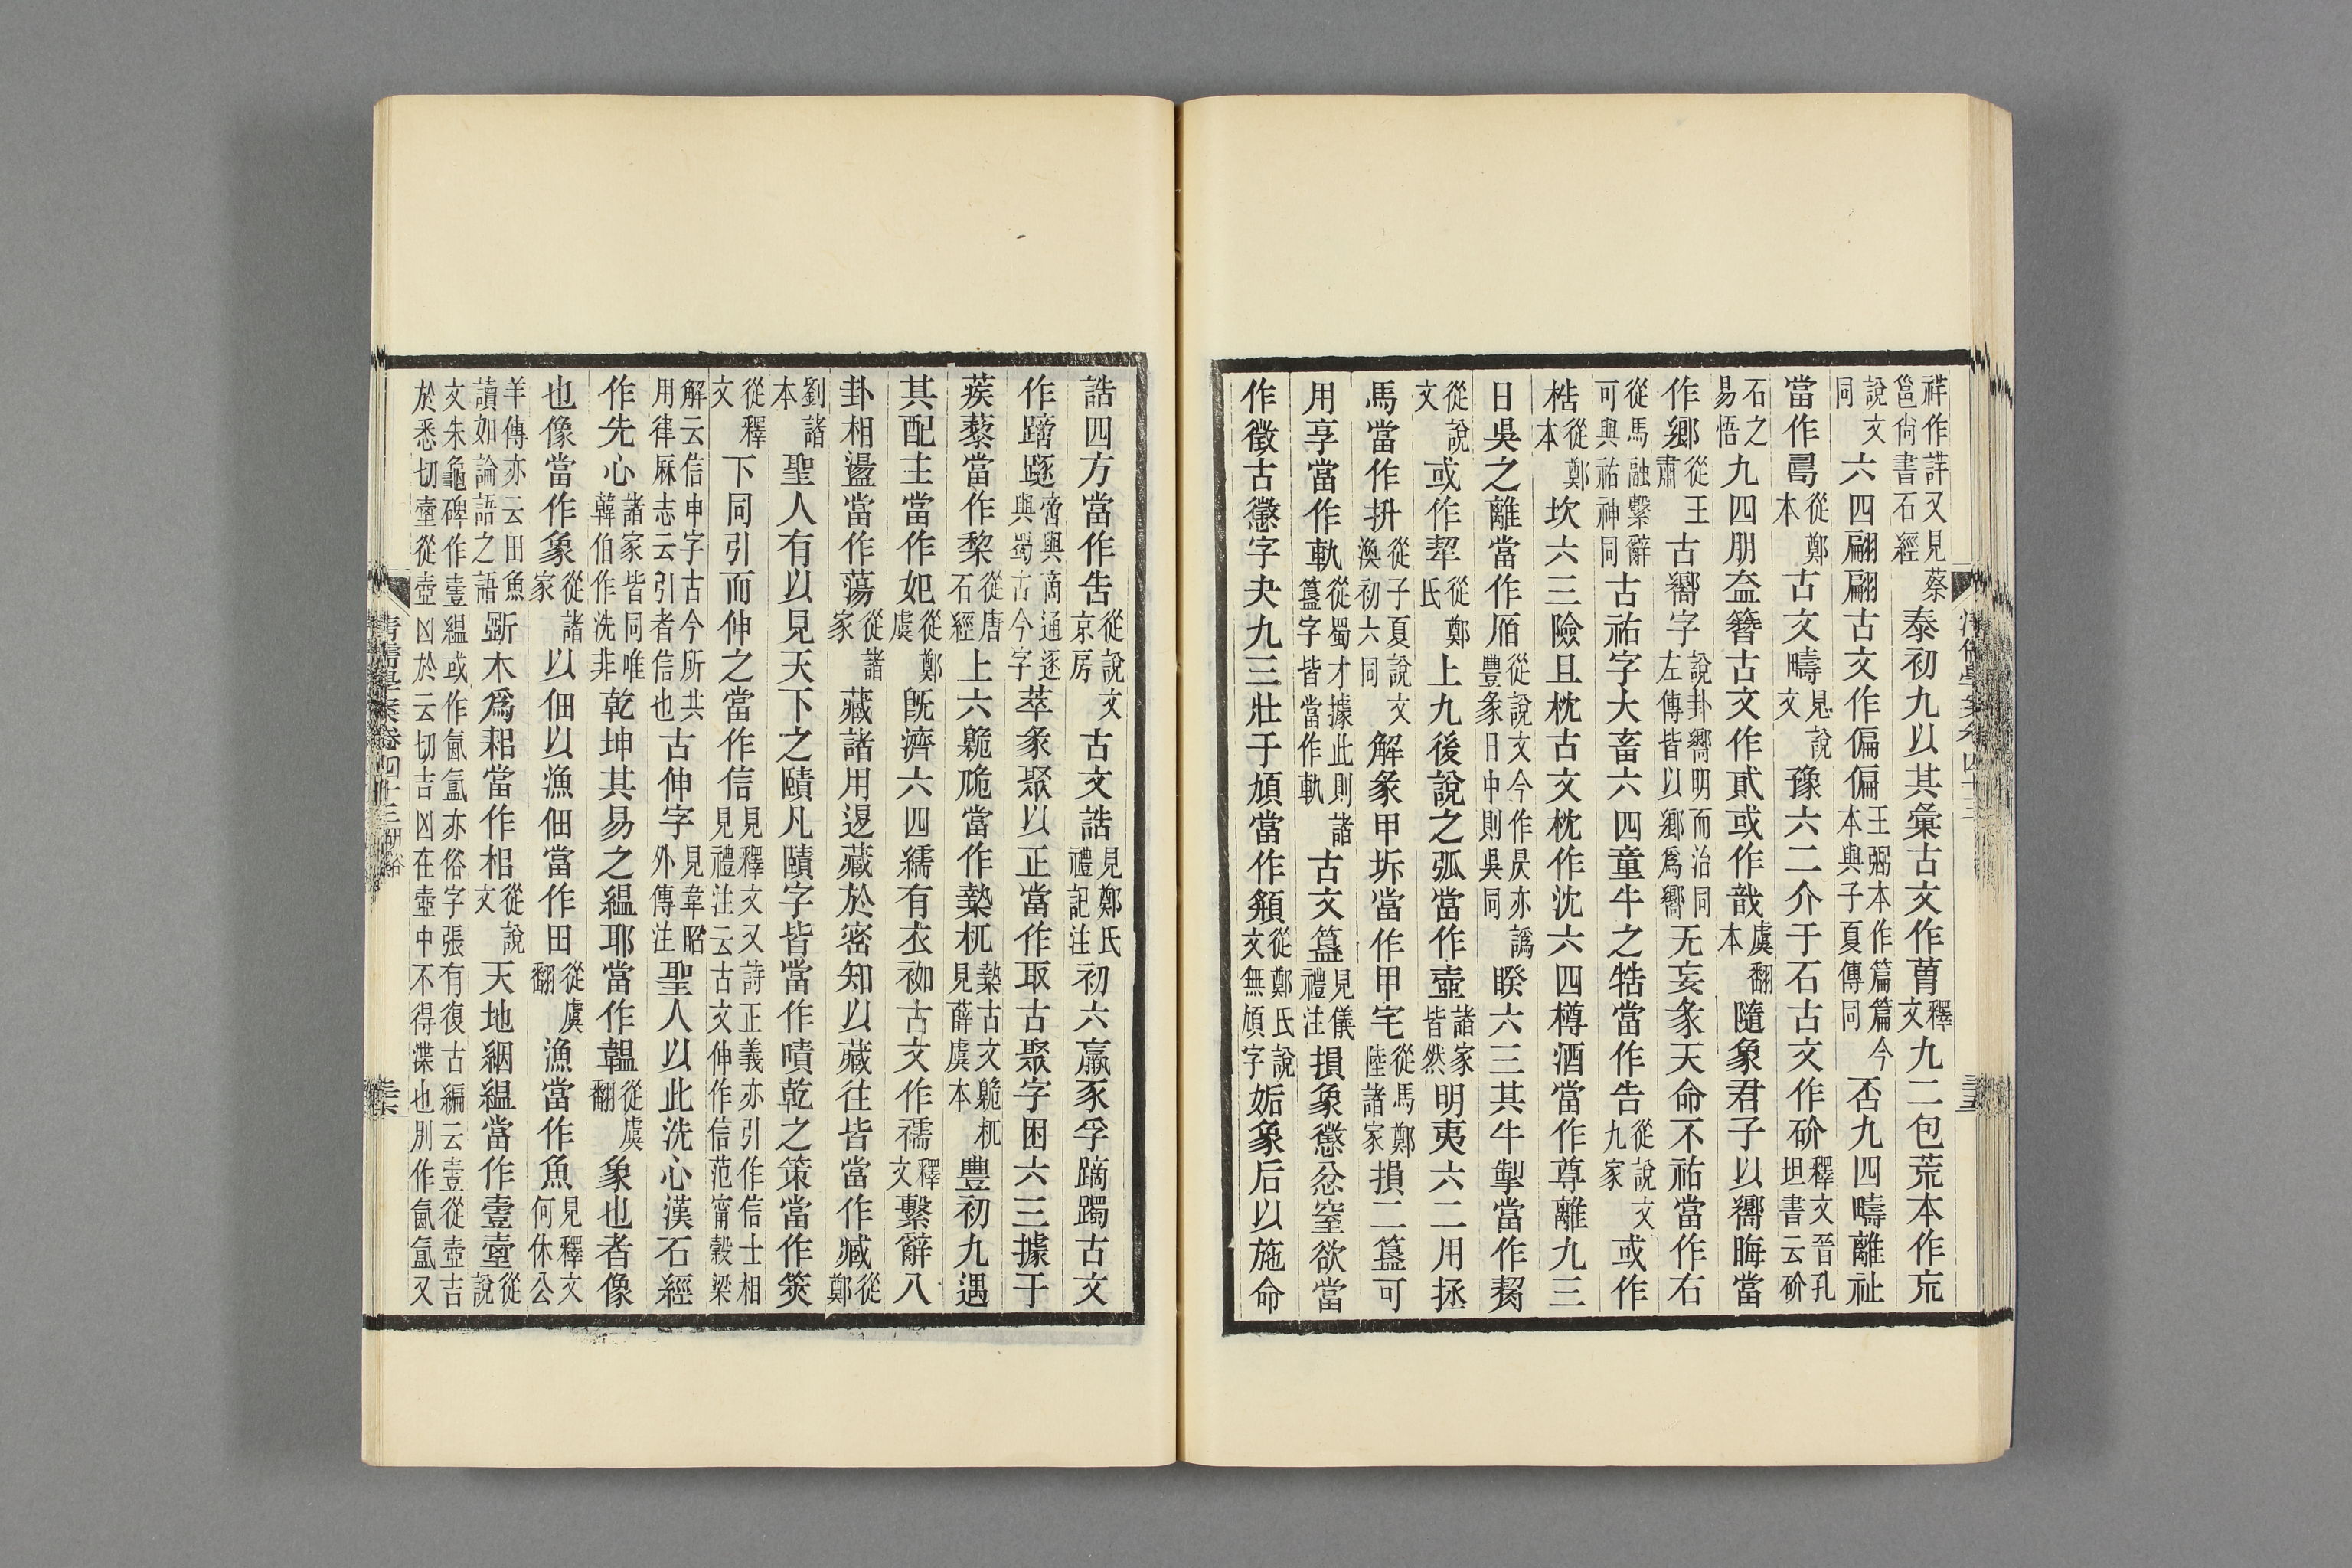 祥作詳又見蔡邕尙書石經泰初九以其彙古文作𦳢釋文九二包荒本作㠩
說文同六四翩翩古文作偏偏王弼本作篇篇今本與子夏傳同否九四疇離祉
當作𠷎從鄭本古文疇見說文豫六二介于石古文作砎釋文晉孔坦書云砎
石之易悟九四朋盍簪古文作貳或作哉虞翻本隨象君子以嚮晦當
作鄉從王肅古嚮字說卦嚮明而治同左傳皆以鄉爲嚮无妄彖天命不祐當作右
從馬融繫辭可與祐神同古祐字大畜六四童牛之牿當作告從說文九家或作
梏從鄭本坎六三險且枕古文枕作沈六四樽酒當作尊離九三
日昃之離當作𢈱從說文今作昃亦譌豐彖日中則昃同睽六三其牛掣當作䎴
從說文或作挈從鄭氏上九後說之弧當作壺諸家皆然明夷六二用拯
馬當作抍從子夏說文渙初六同解彖甲坼當作甲宅從馬鄭陸諸家損二簋可
用享當作軌從蜀才據此則諸簋字皆當作軌古文簋見儀禮注損象懲忿窒欲當
作徵古懲字夬九三壯于頄當作頯從鄭氏說文無頄字姤象后以施命
誥四方當作告從說文京房古文誥見鄭氏禮記注初六羸豕孚蹢躅古文
作蹢𨅊啻與商通逐與蜀古今字萃彖聚以正當作取古聚字困六三據于
蒺藜當作黎從唐石經上六臲卼當作槷杌槷古文臲杌見薛虞本豐初九遇
其配主當作妃從鄭虞旣濟六四繻有衣袽古文作襦釋文繫辭八
卦相盪當作蕩從諸家藏諸用退藏於密知以藏往皆當作臧從鄭
劉諸本聖人有以見天下之賾凡賾字皆當作嘖乾之策當作筴
從釋文下同引而伸之當作信見釋文又詩正義亦引作信士相見禮注云古文伸作信范甯穀梁
解云信申字古今所共用律厤志云引者信也古伸字見韋昭外傳注聖人以此洗心漢石經
作先心諸家皆同唯韓伯作洗非乾坤其易之緼耶當作韞從虞翻象也者像
也像當作象從諸家以佃以漁佃當作田從虞翻漁當作魚見釋文何休公
羊傳亦云田魚讀如論語之語斲木爲耜當作枱從說文天地絪緼當作壹𡔲從說
文朱龜碑作壹緼或作氤氳亦俗字張有復古編云壹從壺吉於悉切𡔲從壺凶於云切吉凶在壺中不得渫也別作氤氳又